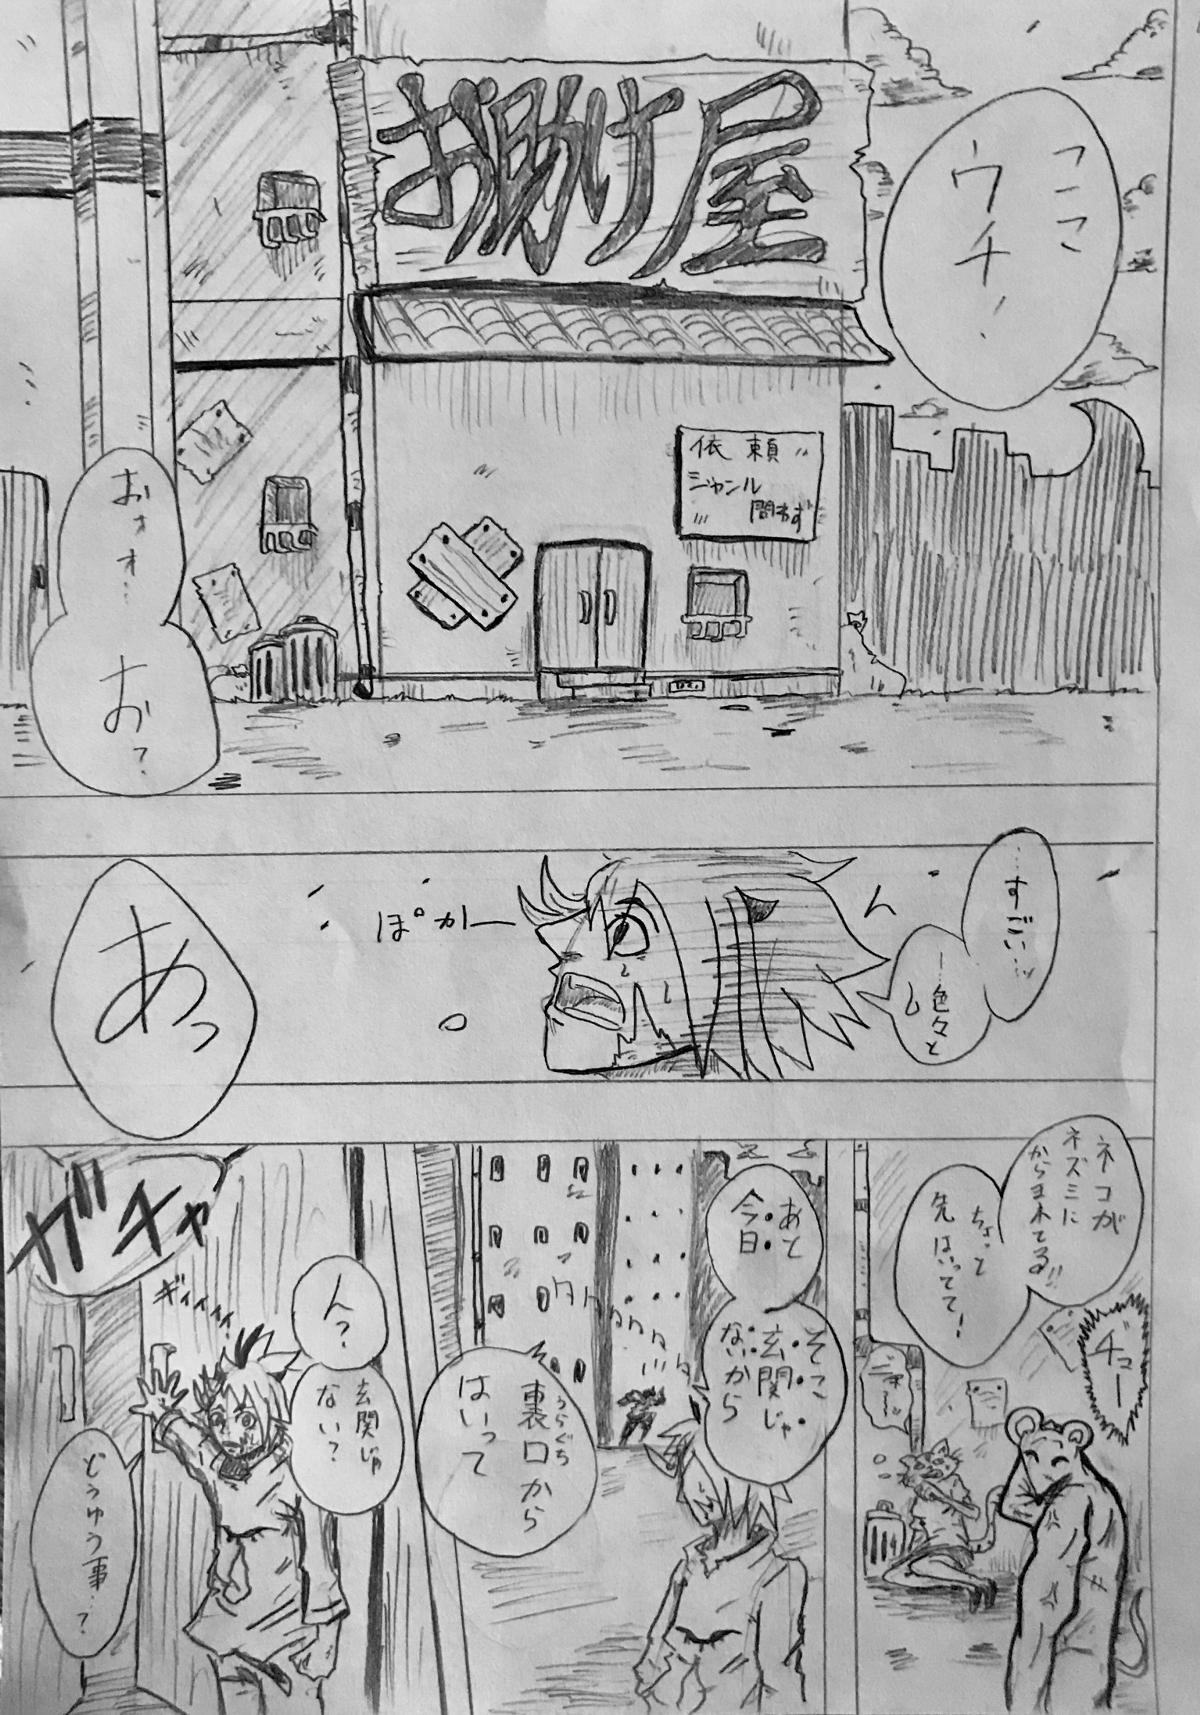 ここ
ウチ！
お助け屋
依頼
ジャンル
問わず
おォォ…
お？
…すごい…
…色々と
ぽかー
あっ
ネコが
ネズミに
からまれてる!!
ちょっと
先はいってて！
チュー
あと
今日
そこ
玄関じゃ
ないから
タタタタタ
裏口から
うらぐち
はいって
ん？
玄関じゃ
ない？
ガチャ
ギィィィィ
どうゆう事…？